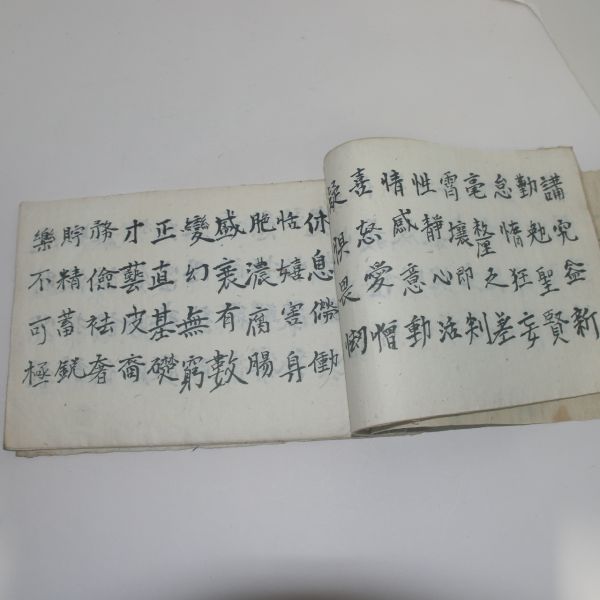 講究益新
勤勉聖賢
怠惰狂妄
毫釐之差
霄壤即判
性静心活
情感意動
喜怒愛憎
惧畏
休息僗働
恬嬉害身
肥濃腐腸
盛衰有數
變幻無窮
正直基礎
才藝皮裔
務儉祛奢
貯精蓄銳
樂不可極